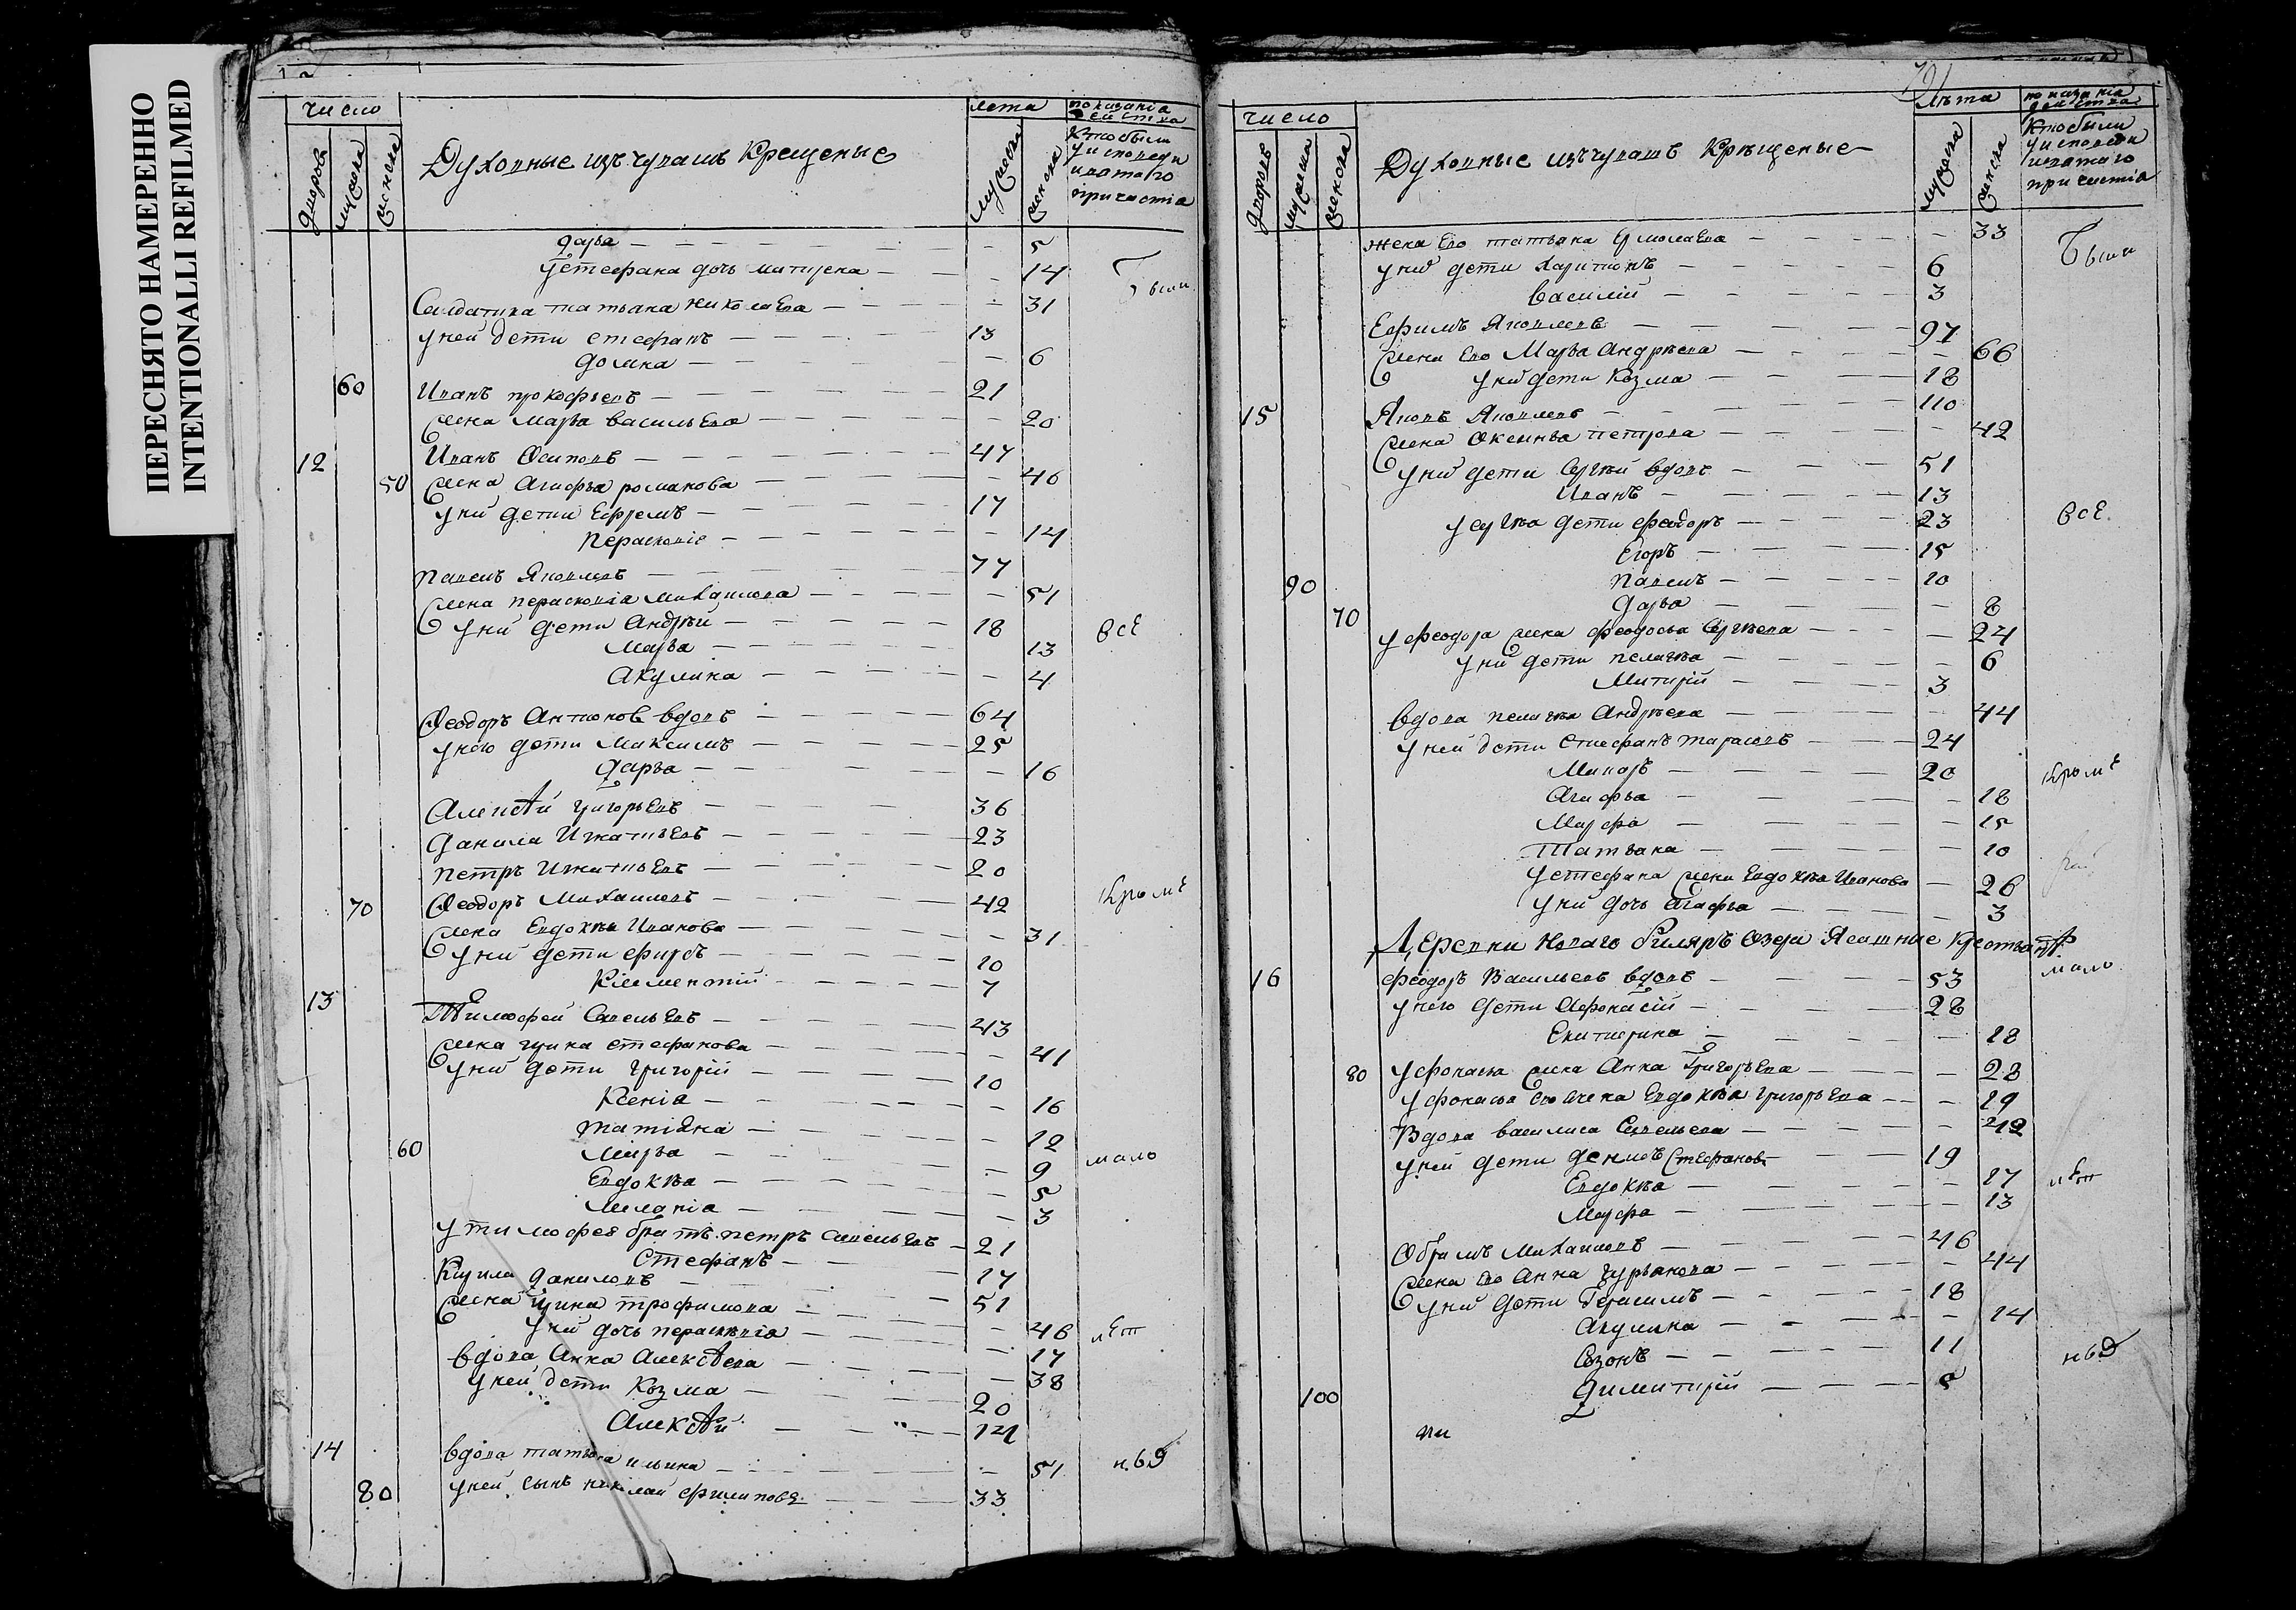 ПЕРЕСНЯТО НАМЕРЕННО
INTENTIONALLI REFILMED
число
дворовъ
мужеска
женска
Духовные изъ чувашъ Крещеные
лета
мужеска
женска
показанiа действа
Кто были
у исповеди
и святаго
причастiа
Дарья — 5
У Стефана дочь митирева — 14
Были
Салдатика татьяна николаева — 31
у ней дети стефанъ — 13
домна — 6
60 Иванъ прокофьевъ — 21
жена марья васильева — 20
12 Иванъ Осиповъ — 47
50 жена Агафья романова — 46
у них дети Ефремъ — 17
Перасковiе — 14
Павелъ Яковлевъ — 77
жена перасковiа михаилова — 51
у них дети Андрей — 18
все
Марья — 13
Акулина — 4
Феодоръ Антонов вдовъ — 64
у него дети Максимъ — 25
Дарья — 16
Алексей григорьевъ — 36
Данила Игнатьевъ — 23
петръ Игнатьевъ — 20
70 Феодоръ Михаиловъ — 42
Кроме
жена Евдокѣа Иванова — 31
у них дети фирсъ — 10
Климентiй — 7
13 Тимофей Савельевъ — 43
жена ирина стефанова — 41
у них дети григорiй — 10
Ксенiа — 16
татiяна — 12
60 Марья — 9
мало
Евдокѣа — 5
Меланiа — 3
у тимофея братъ петръ савельевъ — 21
Стефанъ — 17
Кирила даниловъ — 51
жена ирина трофимова — 46
лет
у них дочь перасковiа — 17
вдова Анна Алексеева — 38
у ней дети Козма — 20
Алексей — 14
14 вдова татьяна ильина — 51
80 у ней сынъ николай филиповъ — 33
число
дворовъ
мужеска
женска
Духовные изъ чувашъ Крѣщеные
лѣта
мужеска
женска
показанiа действа
Кто были
у исповеди
и святаго
причастiа
жена Его татьяна Ермолаева — 33
Были
у них дети Харитонъ — 6
Василiй — 3
Ефимъ Яковлевъ — 97
жена Его Марья Андрѣева — 66
у них дети Козма — 18
15 Яковъ Яковлевъ — 110
жена Оксинья петрова — 42
у них дети Сергѣй вдовъ — 51
Иванъ — 13
у сергѣа дети феодоръ — 23
все.
Егоръ — 15
90 павелъ — 10
70 Дарья — 8
у феодора жена феодосья Сергѣева — 24
у них дети пелагѣа — 6
Митирiй — 3
вдова пелагѣа Андрѣева — 44
у ней дети Стефанъ тарасовъ — 24
Макаръ — 20
Кроме
Агафья — 18
Марфа — 15
Татьяна — 10
у стефана жена Евдокѣа Иванова — 26
у них дочь Агафья — 3
Деревни Новаго Биляръ Озера Ясашние Крестьяне
16 феодоръ Васильевъ вдовъ — 53
мало
у него дети Афонасiй — 28
Екатирина — 18
80 у афонасья жена Анна Григорьева — 28
у афонасья Его жена Евдокѣа григорьева — 19
Вдова василиса Савельева — 42
у ней дети денисъ Стефановъ — 19
Евдокѣа — 17
лет
Марфа — 13
Обрамъ Михаиловъ — 46
жена Его Анна гурьянова — 44
у них дети Герасимъ — 18
Акулина — 14
Созонъ — 11
100 Димитирiй — 5